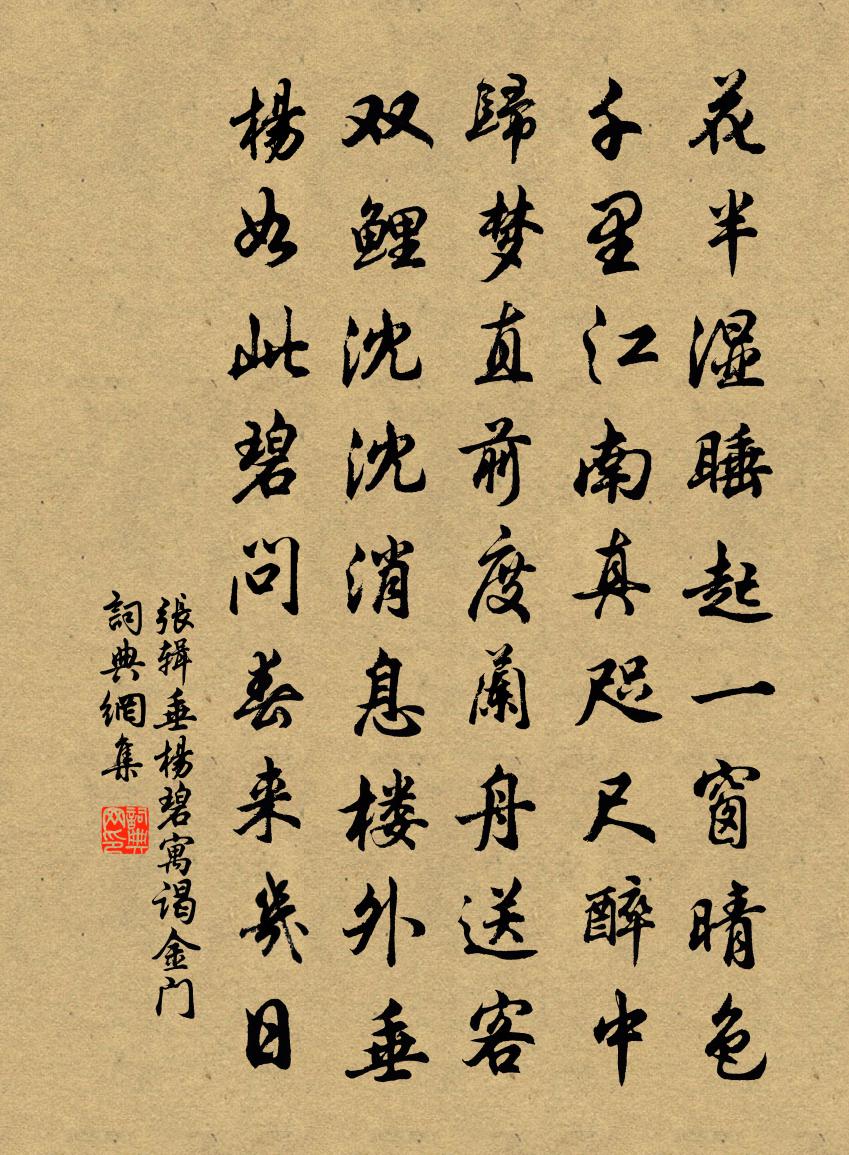 花半湿睡起一窗晴色
千里江南真咫尺醉中
歸梦直前度蘭舟送客
双鲤沈沈消息楼外垂
楊如此碧问春来幾日
張辑垂楊碧寓谒金门
詞典網集
詞典
网印